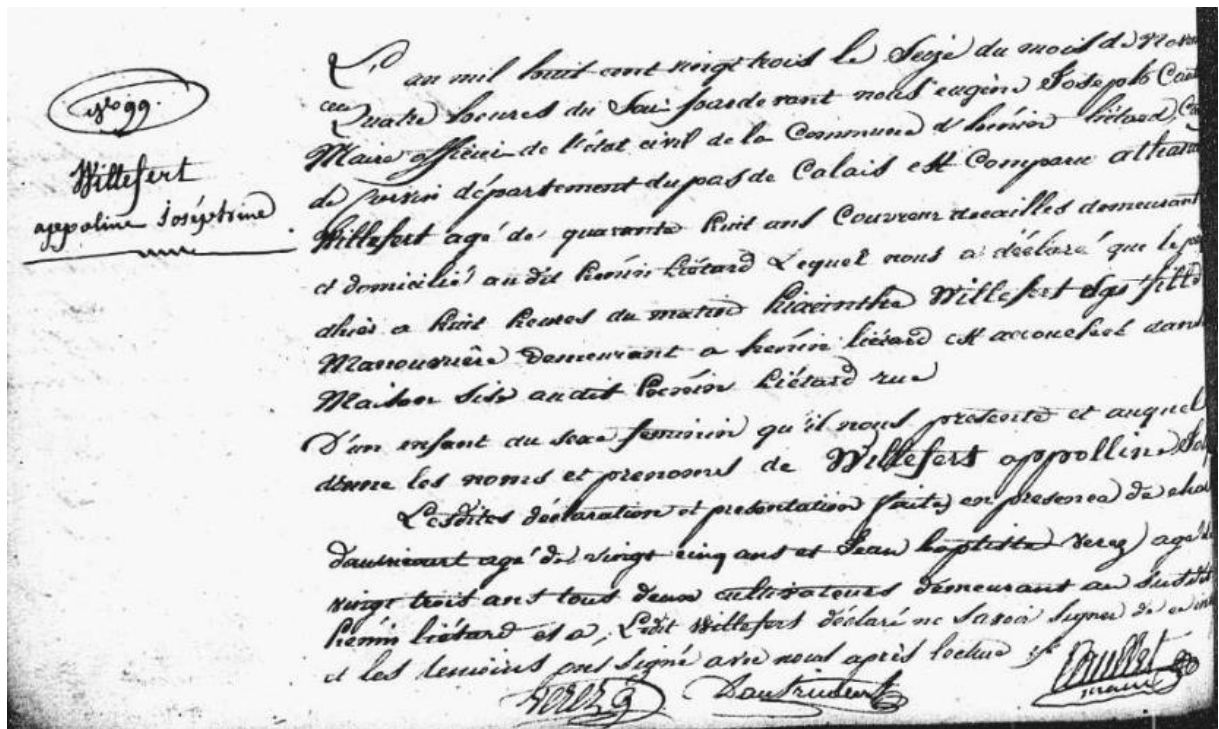 No 99.
Willefert
appoline Joséphine
L'an mil huit cent vingt trois le Seize du mois de Novem
au Quatre heures du Soir pardevant nous eugène Joseph
Maire officier de l'état civil de la Commune d'henin liétard
de département du pas de Calais est Comparu
Willefert agé de quarante huit ans Couvreur decailles demeurant
et domicilié audit henin Liétard Lequel nous a déclaré que le
dhier a huit heures du matin hiacinthe Willefert fille
Manouvrière demeurant a henin liétard est accouchée dans
Maison Sise audit henin Liétard rue
D'un enfant du sexe feminin qu'il nous presente et auquel
donne les noms et prenoms de Willefert appolline
Lesdites déclaration et presentation faites en presence de
dautricourt agé de vingt cinq ans et Jean baptiste verez agé de
vingt trois ans tous deux cultivateurs demeurant au Susdit
henin liétard et a, Ledit Willefert déclaré ne Savoir Signer de ce
et les temoins ont Signé avec nous après lecture
verez Dautricourt
maire